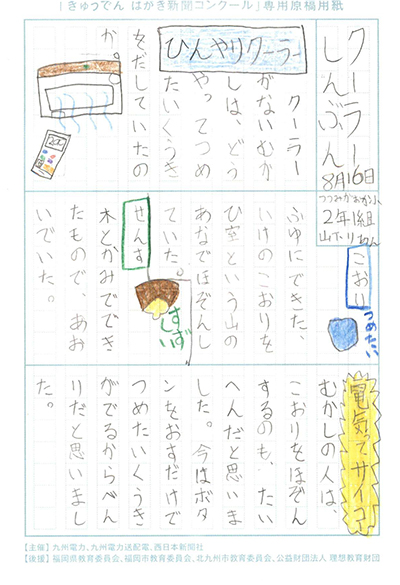 「きゅうでん はがき新聞コンクール」専用原稿用紙
クーラー
しんぶん
8月16日
つつみがおか小
2年1組
ひんやりクーラー
クーラー
がないむか
しは、どう
やってつめ
たいくうき
をだしていたの
か。
こおり
つめたい
ふゆにできた、
いけのこおりを
ひ室という山の
あなでほぞんし
ていた。
せんす
すずしい
木とかみででき
たもので、あお
いでいた。
電気ってサイコー
むかしの人は、
こおりをほぞん
するのも、たい
へんだと思いま
した。今はボタ
ンをおすだけで
つめたいくうき
がでるからべん
りだと思いまし
た。
【主催】九州電力、九州電力送配電、西日本新聞社
【後援】福岡県教育委員会、福岡市教育委員会、北九州市教育委員会、公益財団法人 理想教育財団